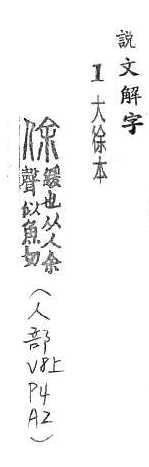 說文解字
1 大徐本
俆 緩也从人余
聲似魚切
(人部 V8上 P4 A2)